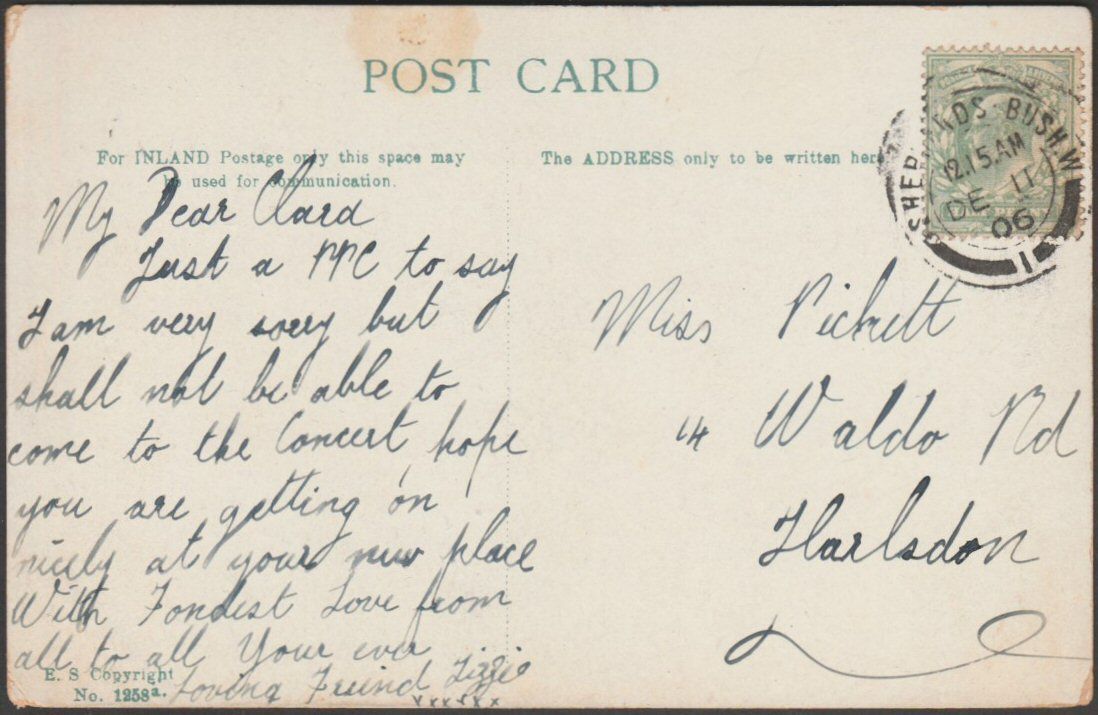 POST CARD
For INLAND Postage only this space may
be used for communication.
The ADDRESS only to be written here
SHEPHERDS·BUSH.W
12.15.AM
DE 11
06
1
My Dear Clara
Just a PPC to say
I am very sorry but
shall not be able to
come to the Concert hope
you are getting on
nicely at your new place
With Fondest Love from
all to all Your ever
Loving Friend Lizzie
xxxxxx
Miss Pickett
14 Waldo Rd
Harlsdon
E. S Copyright
No. 1258a.